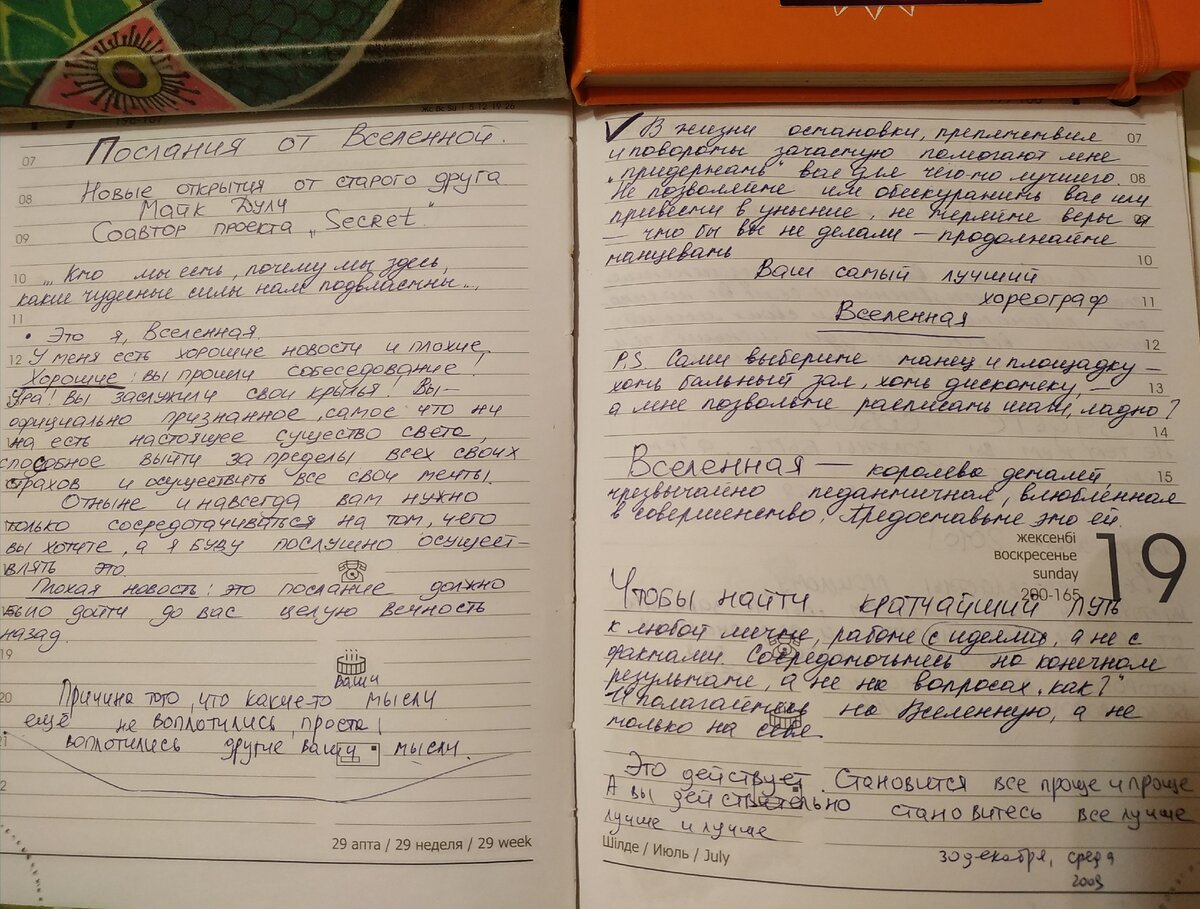 Жс Вс Su 5 12 19 26
07
Послания от Вселенной.
08
Новые открытия от старого друга
Майк Дули
09
Соавтор проекта „Secret"
10
„Кто мы есть, почему мы здесь,
какие чудесные силы нам подвластны...
11
• Это я, Вселенная.
12
У меня есть хорошие новости и плохие,
Хорошие: вы прошли собеседование!
Ура! Вы заслужили свои крылья! Вы –
официально признанное, самое что ни
на есть настоящее существо света,
способное выйти за пределы всех своих
страхов и осуществить все свои мечты.
Отныне и навсегда вам нужно
только сосредотачиваться на том, чего
вы хотите, а я буду послушно осущест-
влять это.
Плохая новость: это послание должно
было дойти до вас целую вечность
назад.
19
20
ваши
Причина того, что какие-то мысли
ещё не воплотились, проста!
воплотились другие ваши мысли.
29 апта / 29 неделя / 29 week
✓ В жизни остановки, препятствия
07
и повороты зачастую помогают мне
„придержать" вас для чего-то лучшего.
08
Не позволяйте им обескуражить вас или
привести в уныние, не теряйте веры и
— что бы вы не делали — продолжайте
танцевать
10
Ваш самый лучший
хореограф
11
Вселенная
12
P.S. Сами выберите танец и площадку —
хоть бальный зал, хоть дискотеку, —
13
а мне позвольте расписать шаги, ладно?
14
Вселенная — королева деталей,
15
чрезвычайно педантичная, влюблённая
в совершенство. Предоставьте это ей.
жексенбі
воскресенье
sunday
200-165
19
Чтобы найти кратчайший путь
к любой мечте, работе с идеями, а не с
фактами. Сосредоточьтесь на конечном
результате, а не на вопросах „как?"
И полагайтесь на Вселенную, а не
только на себя.
Это действует. Становится все проще и проще
А вы действительно становитесь все лучше
лучше и лучше
Шілде / Июль / July
30 декабря, среда
2009